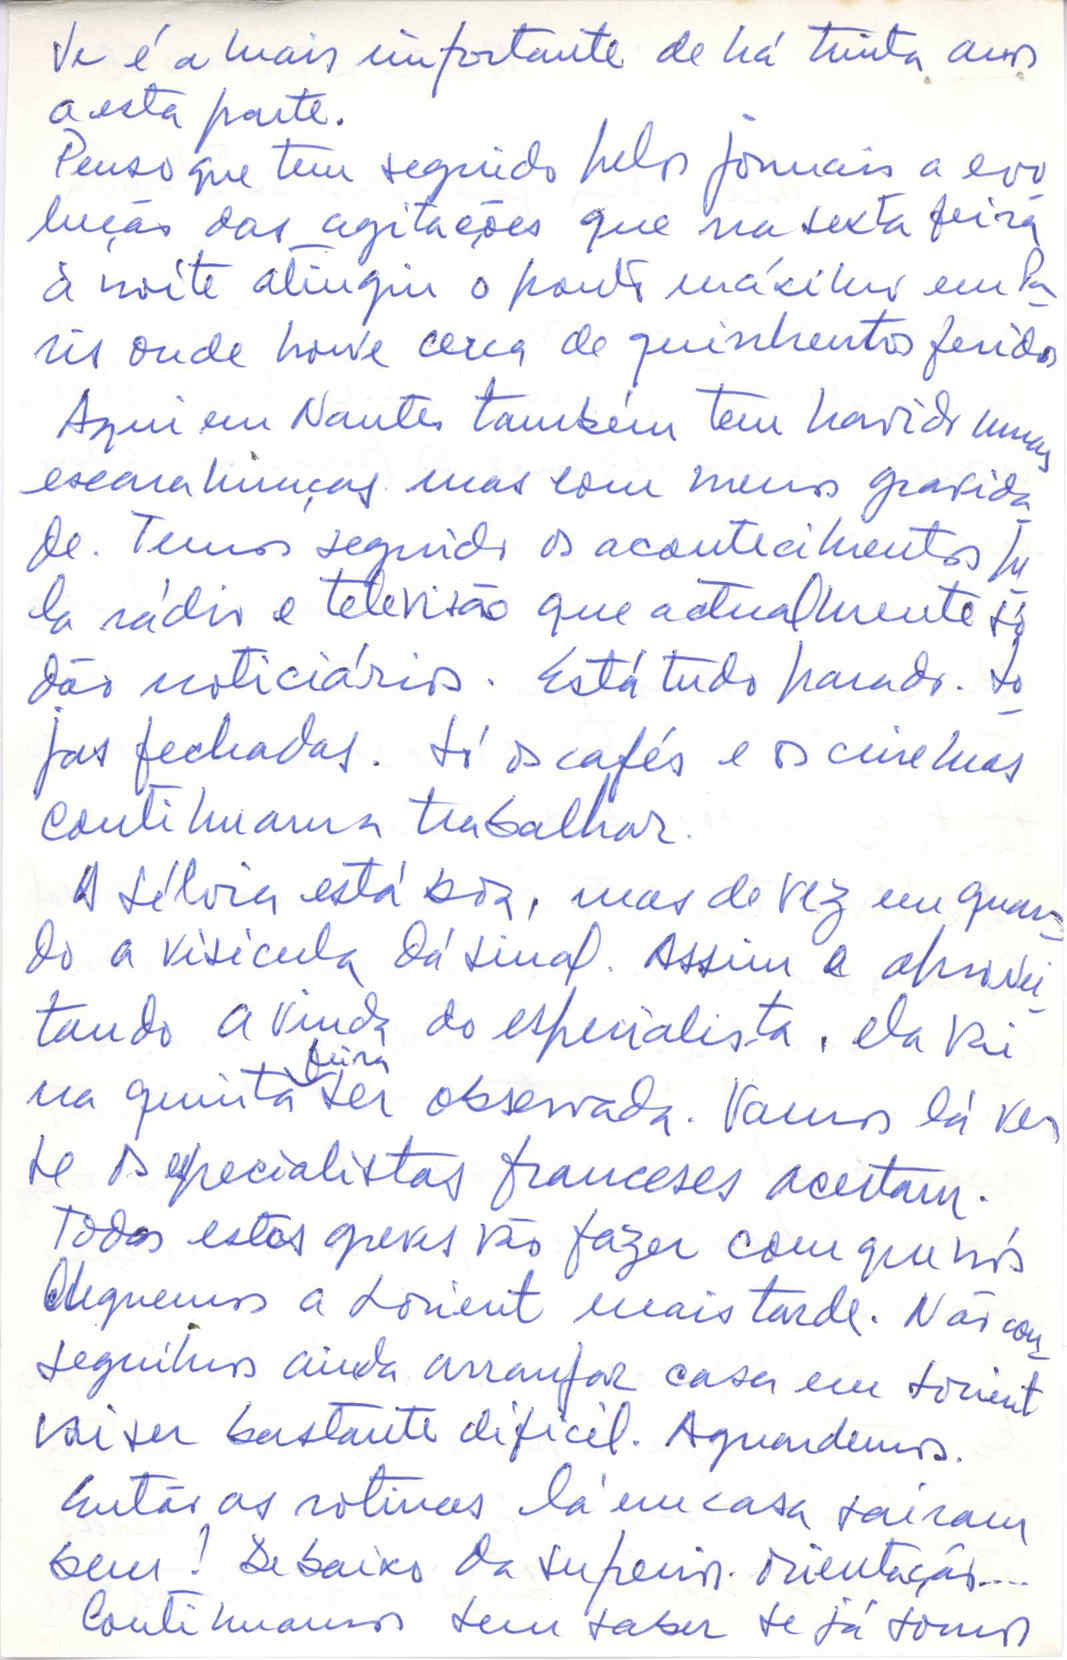 Ve é a mais importante de há trinta anos
a esta parte.
Penso que tem seguido pelos jornais a evo
lução das agitações que na sexta feira
à noite atingiu o ponto máximo em Pa-
ris onde houve cerca de quinhentos feridos
Aqui em Nantes também tem havido umas
escaramuças mas com menos gravida
de. Temos seguido os acontecimentos pe
la rádio e televisão que actualmente só
dão noticiários. Está tudo parado. Lo
jas fechadas. Só os cafés e os cinemas
continuam a trabalhar.
A Sílvia está boa, mas de vez em quan-
do a visicula dá sinal. Assim e aprovei-
tando a vinda do especialista, ela vai
na quinta feira ser observada. Vamos lá ver
se os especialistas franceses acertam.
Todas estas greves vão fazer com que nós
cheguemos a Lorient mais tarde. Não con-
seguimos ainda arranjar casa em Lorient
vai ser bastante dificil. Aguardemos.
Então as rotinas lá em casa sairam
bem! Debaixo da superior orientação....
Continuamos sem saber se já somos